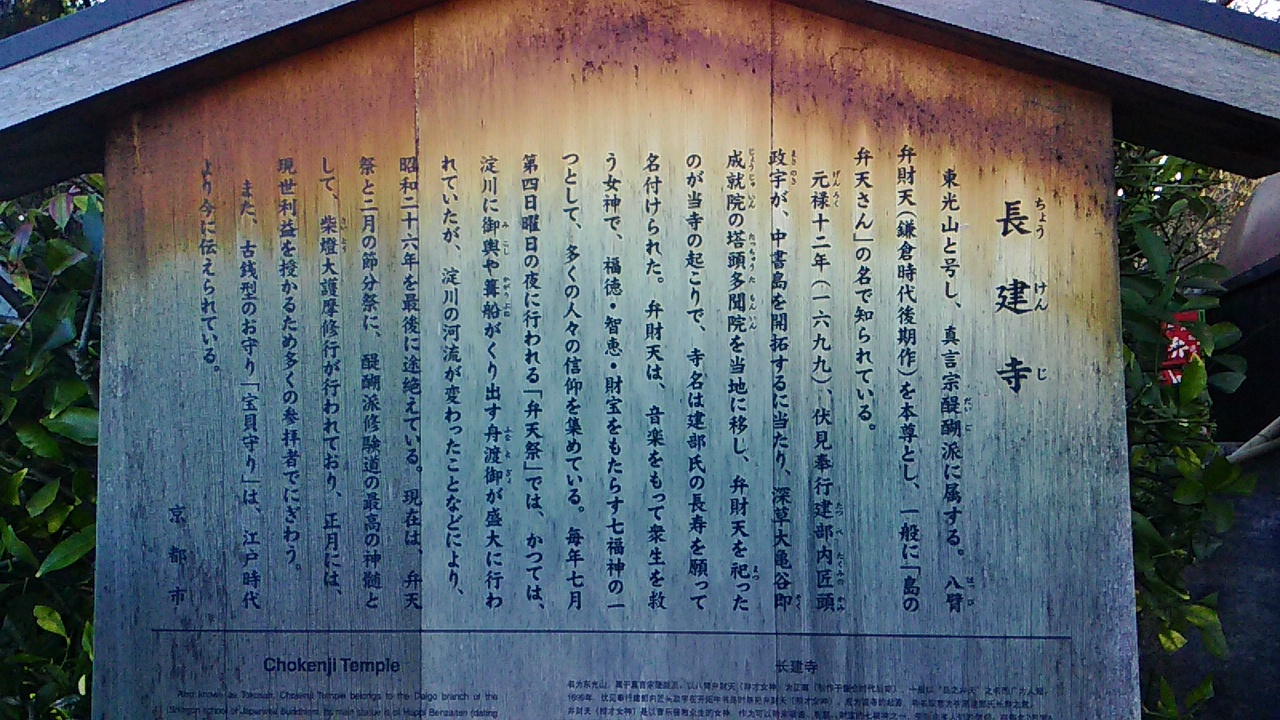 長建寺
ちょう けん じ
東光山と号し、真言宗醍醐派に属する。八臂
だいご はっぴ
弁財天(鎌倉時代後期作)を本尊とし、一般に「島の
弁天さん」の名で知られている。
元禄十二年(一六九九)、伏見奉行建部内匠頭
げんろく たつべ たくみのかみ
政宇が、中書島を開拓するに当たり、深草大亀谷即
まさのき そく
成就院の塔頭多聞院を当地に移し、弁財天を祀った
じょうじゅいん たっちゅうたもんいん まつ
のが当寺の起こりで、寺名は建部氏の長寿を願って
名付けられた。弁財天は、音楽をもって衆生を救
う女神で、福徳・智恵・財宝をもたらす七福神の一
つとして、多くの人々の信仰を集めている。毎年七月
第四日曜日の夜に行われる「弁天祭」では、かつては、
淀川に御輿や篝船がくり出す舟渡御が盛大に行わ
みこし かがりぶね ふなとぎょ
れていたが、淀川の河流が変わったことなどにより、
昭和二十六年を最後に途絶えている。現在は、弁天
祭と二月の節分祭に、醍醐派修験道の最高の神髄と
して、柴燈大護摩修行が行われており、正月には、
さいとう
現世利益を授かるため多くの参拝者でにぎわう。
また、古銭型のお守り「宝貝守り」は、江戸時代
より今に伝えられている。
京都市
Chokenji Temple
Also known as Tokosan, Chokenji Temple belongs to the Daigo branch of the
Shingon school of Japanese Buddhism. Its main statue is of Happi Benzaiten (dating
长建寺